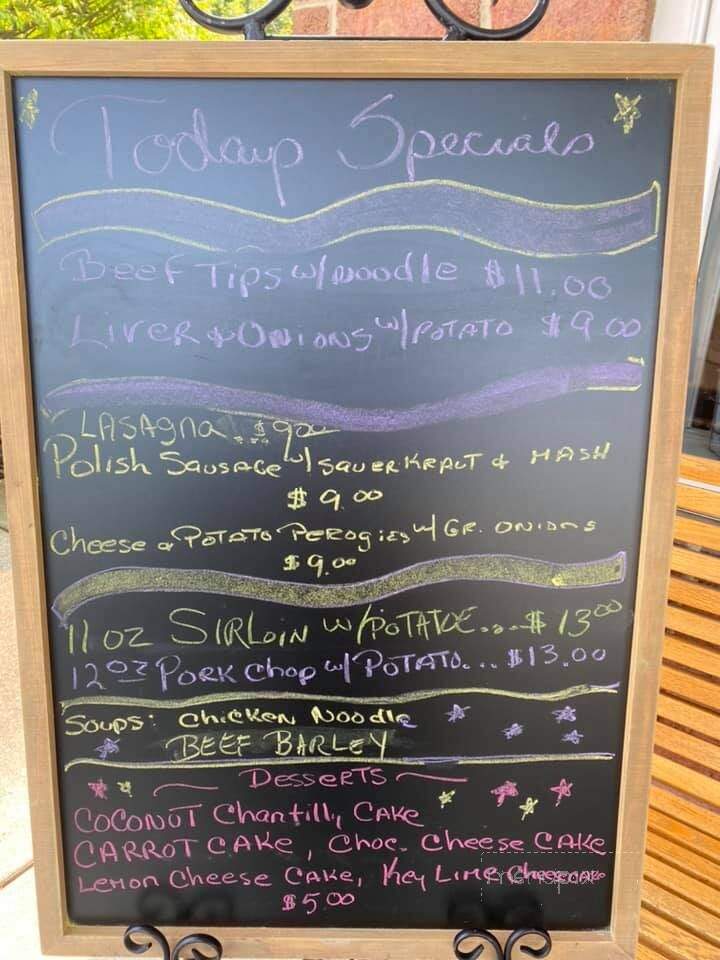 Today Specials
Beef Tips w/ Noodle $11.00
Liver & Onions w/ Potato $9.00
Lasagna... $9.00
Polish Sausage w/ Sauerkraut & Mash
$9.00
Cheese & Potato Perogies w/ Gr. Onions
$9.00
11 oz Sirloin w/ Potatoe... $13.00
12 oz Pork Chop w/ Potato... $13.00
Soups: Chicken Noodle
Beef Barley
Desserts
Coconut Chantilly Cake
Carrot Cake, Choc. Cheese Cake
Lemon Cheese Cake, Key Lime Cheesecake
$5.00